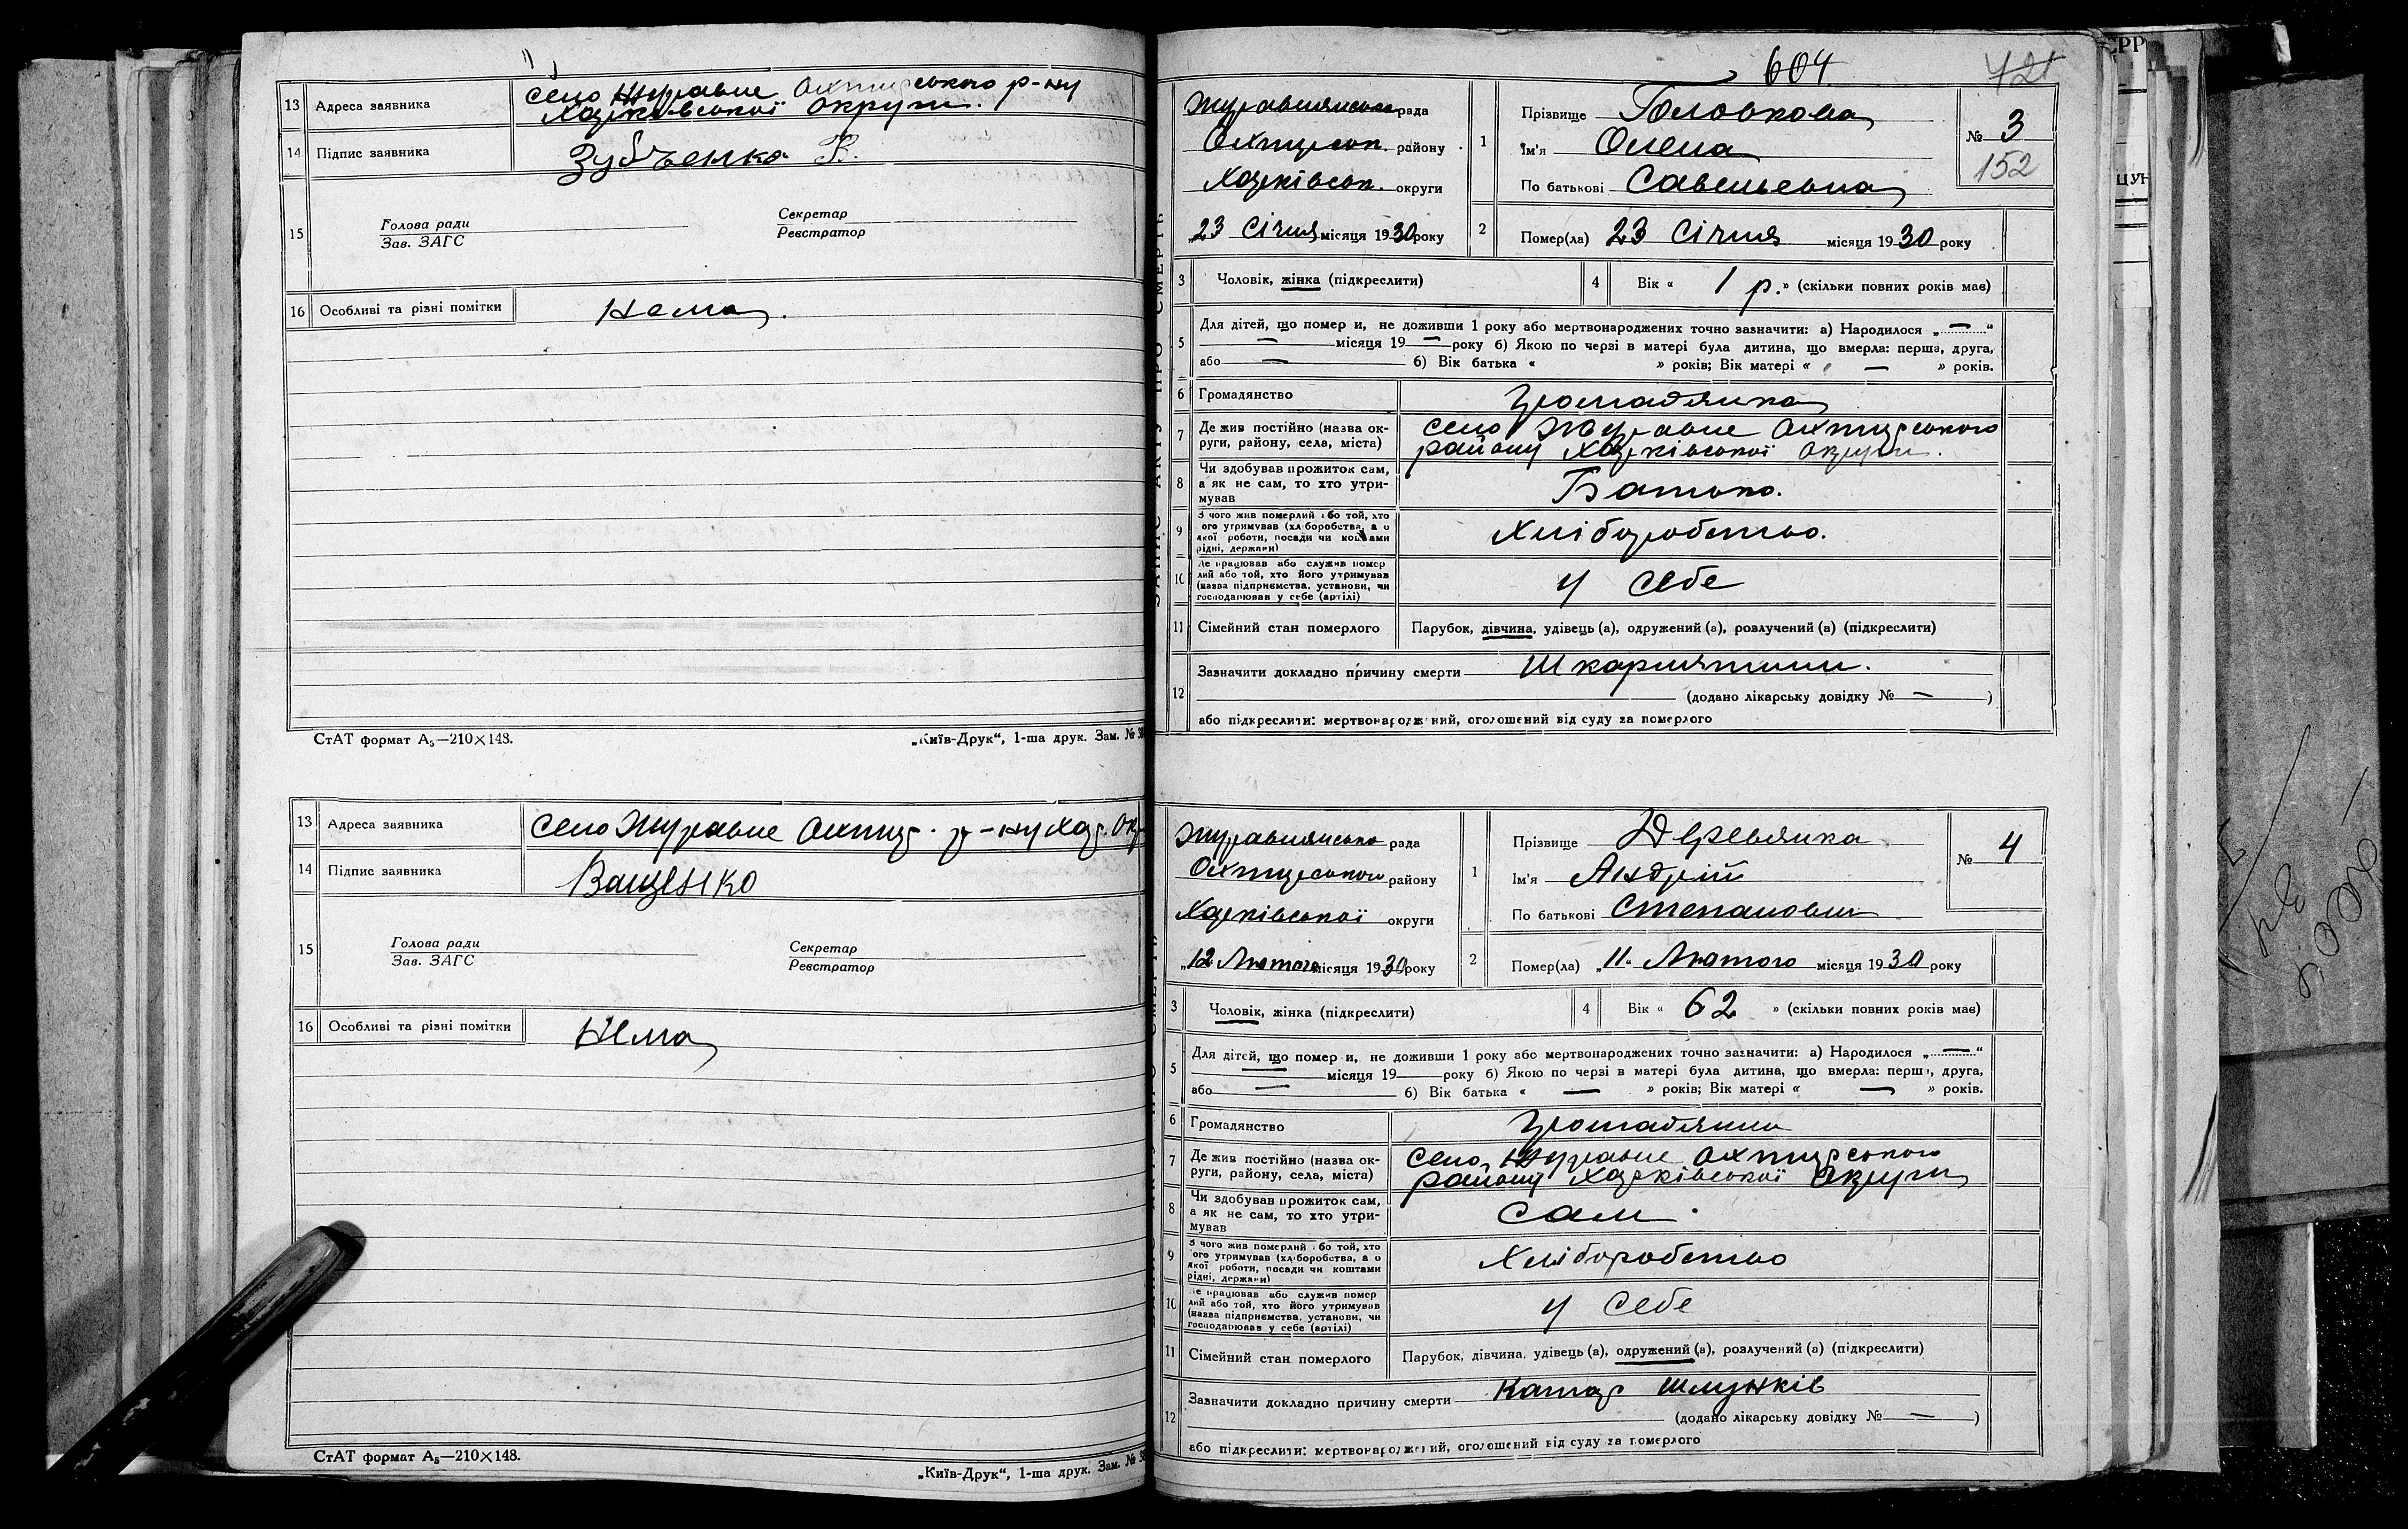 13 Адреса заявника село Журавне Охтирського р-ну
Харківської округи.
14 Підпис заявника Зубченко В.
15 Голова ради Секретар
Зав. ЗАГС Реєстратор
16 Особливі та різні помітки Нема.
СтАТ формат А₅—210×148. „Київ-Друк“, 1-ша друк. Зам. №
13 Адреса заявника Село Журавне Охтир. р-ну Хар. Ок
14 Підпис заявника Ващенко
15 Голова ради Секретар
Зав. ЗАГС Реєстратор
16 Особливі та різні помітки Нема
СтАТ формат А₅—210×148.
„Київ-Друк“, 1-ша друк. Зам. №
604
Журавнянська рада
Охтирськ. району
Харківськ. округи
„23 Січня місяця 1930 року
1 Прізвище Головкова
Ім'я Олена
По батькові Савельевна
№ 3
152
2 Помер(ла) 23 Січня місяця 1930 року
3 Чоловік, жінка (підкреслити) 4 Вік « 1 р. » (скільки повних років має)
5 Для дітей, що помер и, не доживши 1 року або мертвонароджених точно зазначити: а) Народилося „—“
— місяця 19 — року б) Якою по черзі в матері була дитина, що вмерла: перша, друга,
або — б) Вік батька « » років; Вік матері « — » років.
6 Громадянство Громадянка
7 Де жив постійно (назва ок-
руги, району, села, міста) село Журавне Охтирського
району Харківської округи.
8 Чи здобував прожиток сам,
а як не сам, то хто утри-
мував Батько.
9 З чого жив померлий або той, хто
ого утримував (хліборобства, а о
якої роботи, посади чи коштами
рідні, держави) Хліборобство.
10 Де працював або служив помер
лий або той, хто його утримував
(назва підприємства, установи, чи
господарював у себе (артілі) У себе
11 Сімейний стан померлого Парубок, дівчина, удівець (а), одружений (а), розлучений (а) (підкреслити)
12 Зазначити докладно причину смерти Шкарлятини.
(додано лікарську довідку № — )
або підкреслити: мертвонароджений, оголошений від суду за померлого
Журавнянсько рада
Охтирського району
Харківської округи
„12 Лютого місяця 1930 року
1 Прізвище Деревянка
Ім'я Андрій
По батькові Степанович
№ 4
2 Помер(ла) „11“ Лютого місяця 1930 року
3 Чоловік, жінка (підкреслити) 4 Вік « 62 » (скільки повних років має)
5 Для дітей, що помер и, не доживши 1 року або мертвонароджених точно зазначити: а) Народилося „—“
місяця 19 року б) Якою по черзі в матері була дитина, що вмерла: перша, друга,
або — б) Вік батька « — » років; Вік матері « — » років.
6 Громадянство Громадянин
7 Де жив постійно (назва ок-
руги, району, села, міста) село Журавне Охтирського
району Харківської округи
8 Чи здобував прожиток сам,
а як не сам, то хто утри-
мував Сам
9 З чого жив померлий або той, хто
ого утримував (хліборобства, а о
якої роботи, посади чи коштами
рідні, держави) Хліборобство
10 Де працював або служив помер
лий або той, хто його утримував
(назва підприємства, установи, чи
господарював у себе (артілі) У себе
11 Сімейний стан померлого Парубок, дівчина, удівець (а), одружений (а), розлучений (а) (підкреслити)
12 Зазначити докладно причину смерти Катар шлунків
(додано лікарську довідку № — )
або підкреслити: мертвонароджений, оголошений від суду за померлого